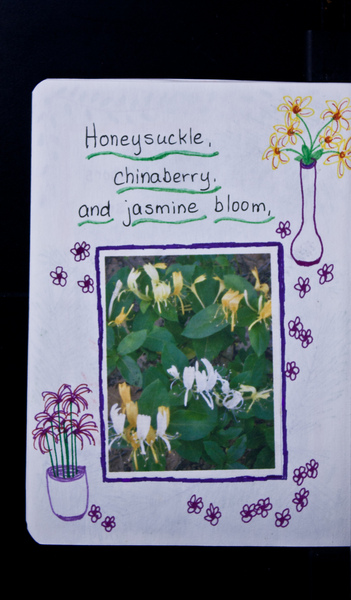 Honeysuckle,
chinaberry,
and jasmine bloom,